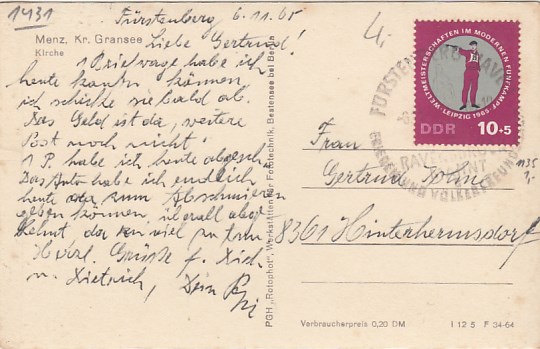 1431
Fürstenberg 6.11.65
4,-
Menz, Kr. Gransee
Kirche
Liebe Gertrud!
1 Briefwage habe ich
heute kaufen können,
ich schicke sie bald ab.
Das Geld ist da, weitere
Post noch nicht!
1 P. habe ich heute abgesch.
Das Auto habe ich endlich
heute zum Abschmieren
geben können, überall
fehlt da, viel zu tun
Herzl. Grüße f. Dich
u. Dietrich, Dein
PGH „Rotophot", Werkstätten für Fototechnik, Bestensee bei Berlin
WELTMEISTERSCHAFTEN IM MODERNEN FÜNFKAMPF
LEIPZIG 1965
DDR 10+5
FÜRSTENBERG
RAVENSBRÜCK
MAHNT
FRIEDEN UND VÖLKERFREUNDSCHAFT
Frau
Gertrud
8361 Hinterhermsdorf
1135
3,-
Verbraucherpreis 0,20 DM
I 12 5 F 34-64